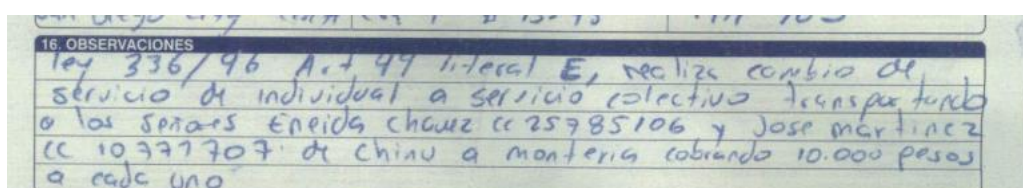 16. OBSERVACIONES
ley 336/96 Art 49 literal E, realiza cambio de
servicio de individual a servicio colectivo transportando
a los señores Eneida Chavez cc 25785106 y Jose martinez
cc 10777707 de Chinu a monteria cobrando 10.000 pesos
a cada uno